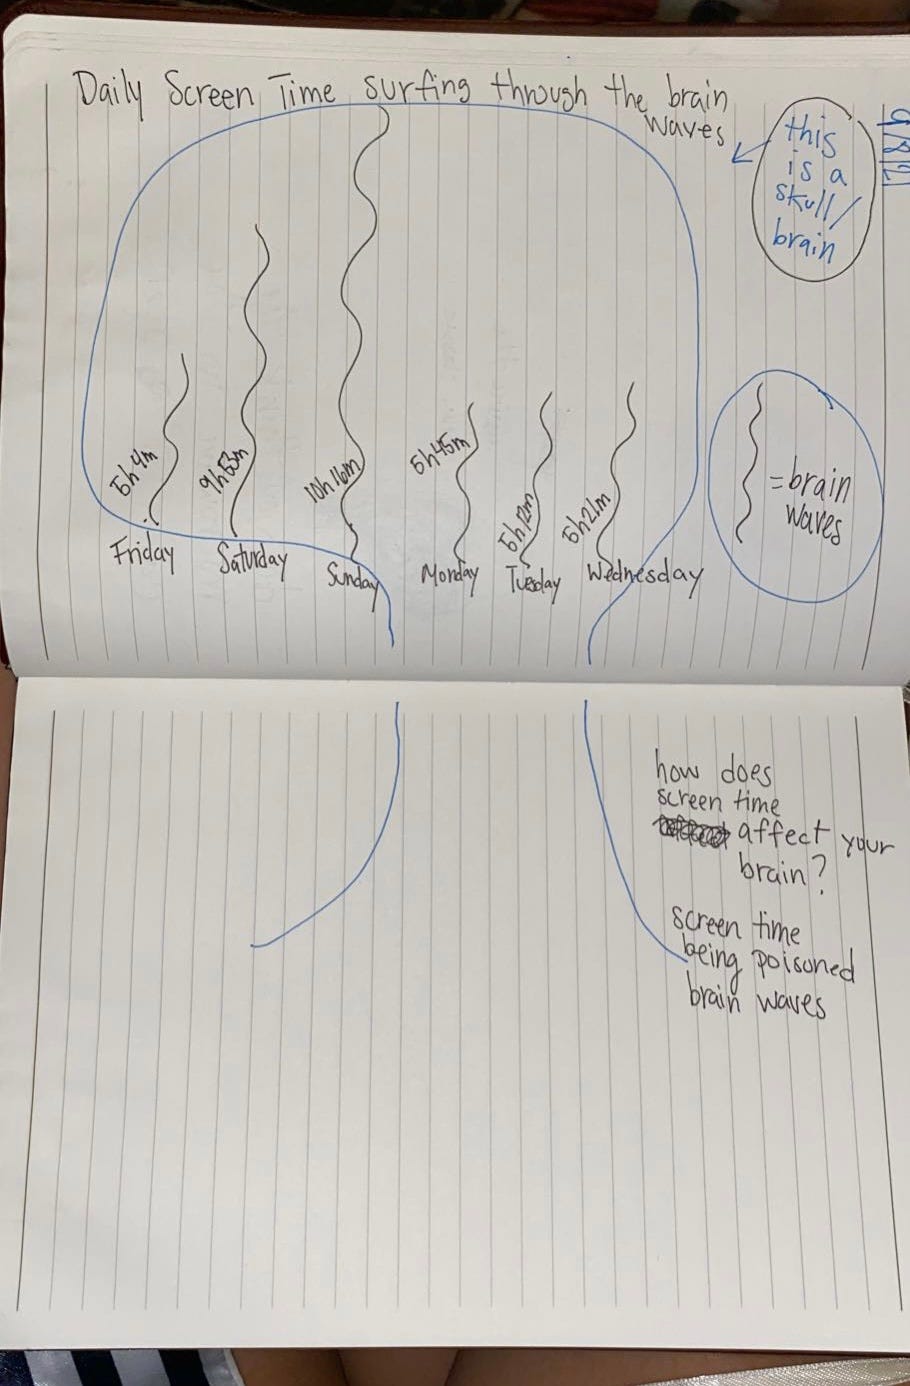 Daily Screen Time surfing through the brain
waves
this
is a
skull/
brain
9/8/21
5h 4m
9h 53m
10h 16m
5h 45m
5h 12m
5h 21m
Friday
Saturday
Sunday
Monday
Tuesday
Wednesday
= brain
waves
how does
screen time
affect your
brain?
screen time
being poisoned
brain waves